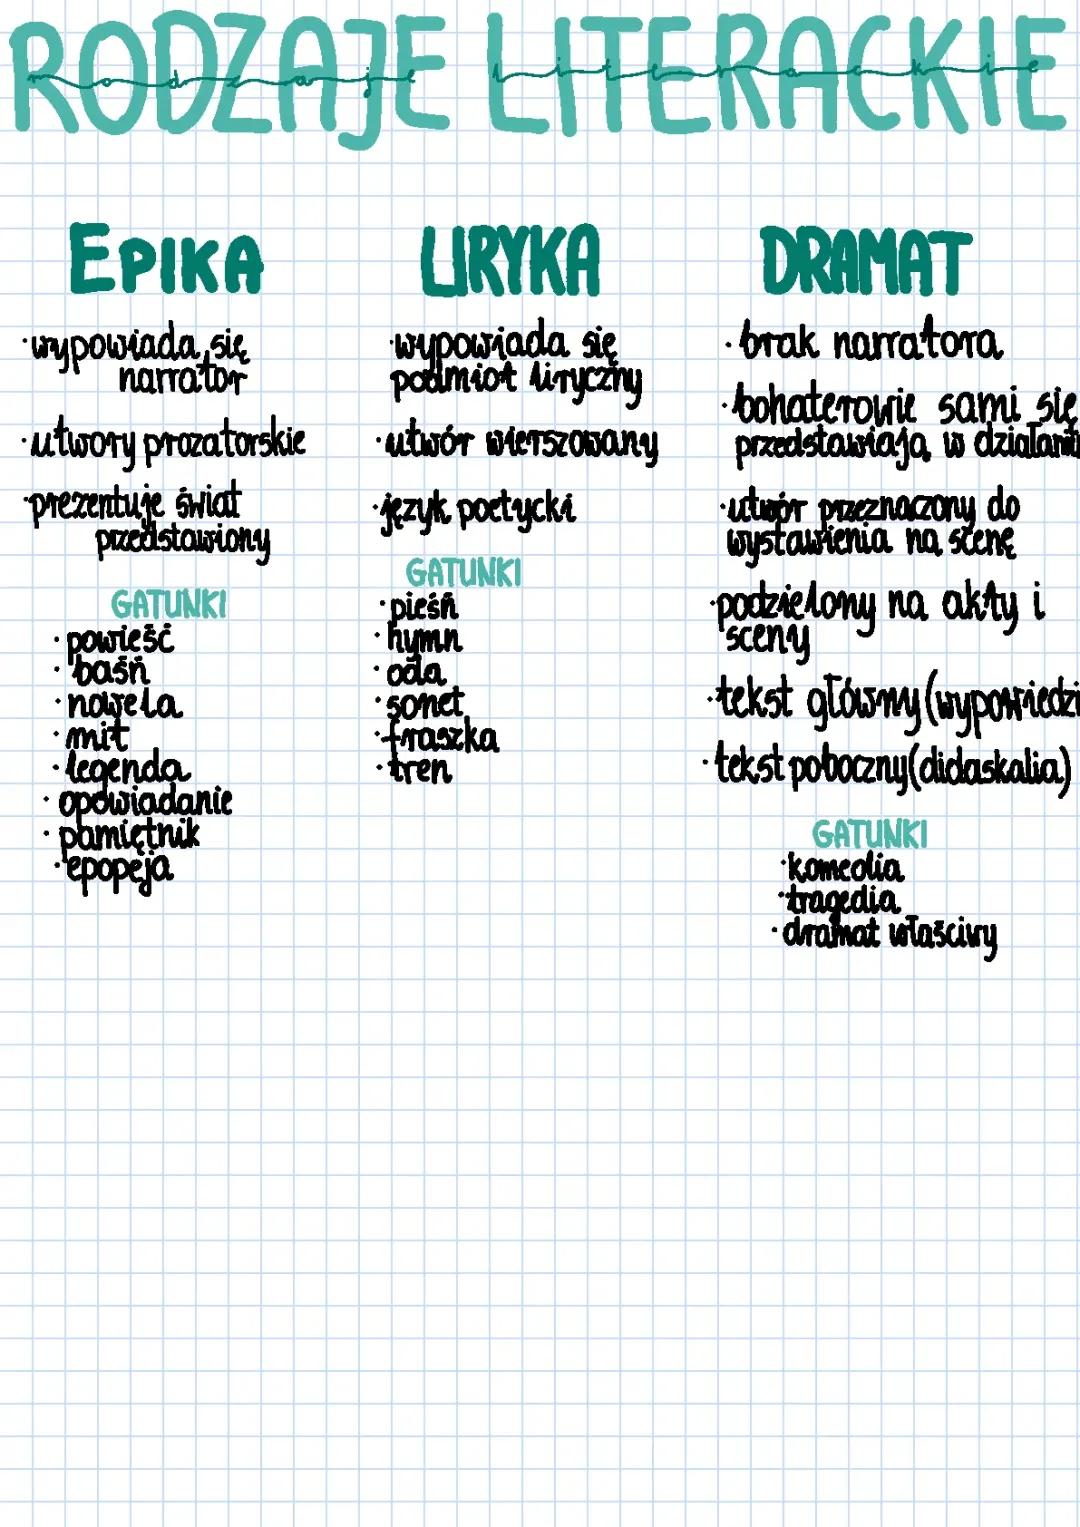 RODZAJE LITERACKIE
rodzaje literackie
EPIKA
·wypowiada się
narrator
·utwory prozatorskie
·prezentuje świat
przedstawiony
GATUNKI
·powieść
·baśń
·nowela
·mit
·legenda
·opowiadanie
·pamiętnik
·epopeja
LIRYKA
·wypowiada się
podmiot liryczny
·utwór wierszowany
·język poetycki
GATUNKI
·pieśń
·hymn
·oda
·sonet
·fraszka
·tren
DRAMAT
·brak narratora
·bohaterowie sami się
przedstawiają w działaniu
·utwór przeznaczony do
wystawienia na scenę
·podzielony na akty i
sceny
·tekst główny (wypowiedzi
·tekst poboczny (didaskalia)
GATUNKI
·komedia
·tragedia
·dramat właściwy